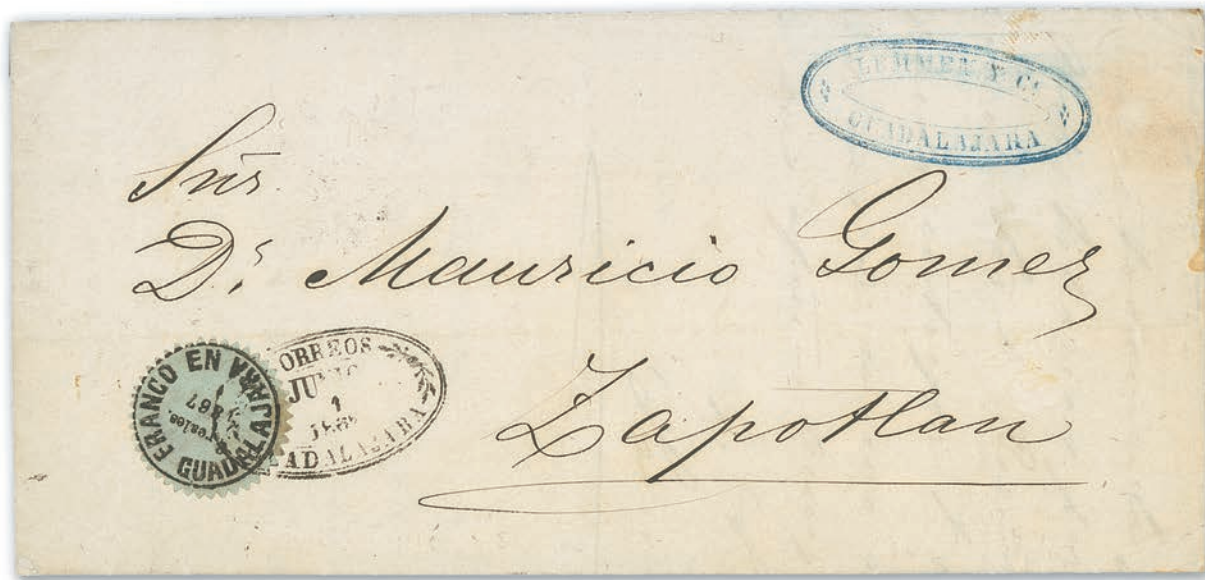 LEMMEN Y Cª
GUADALAJARA
Sñr
Dⁿ Mauricio Gomez
Zapotlan
FRANCO EN
GUADALAJARA
reales.
1867
ORREOS
JUNIO
1
ADALAJARA